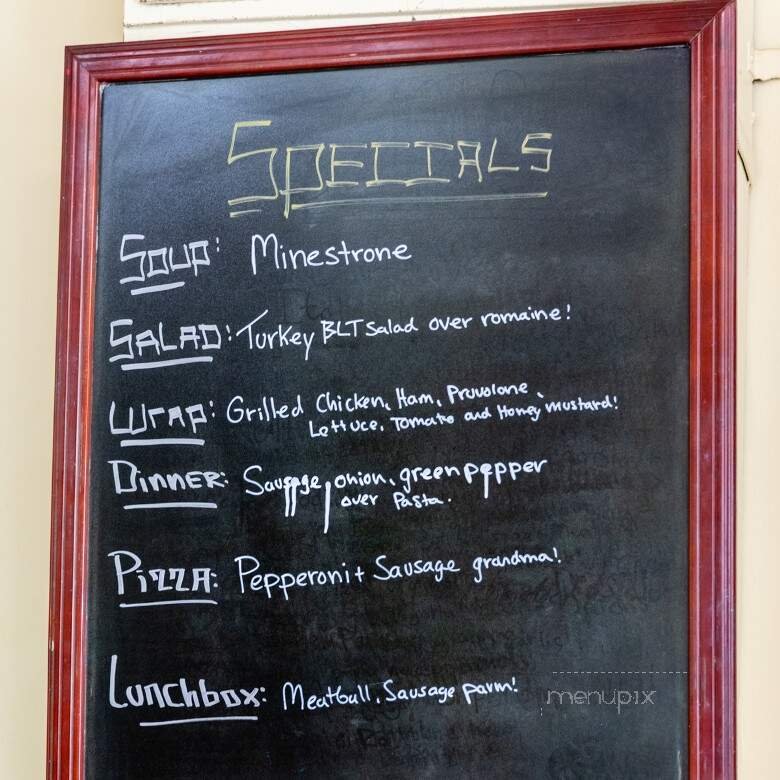 Specials
Soup: Minestrone
Salad: Turkey BLT Salad over romaine!
Wrap: Grilled Chicken, Ham, Provolone,
Lettuce, Tomato and Honey mustard!
Dinner: Sausage, onion, green pepper
over Pasta.
Pizza: Pepperoni + Sausage grandma!
Lunchbox: Meatball, Sausage parm!
menupix